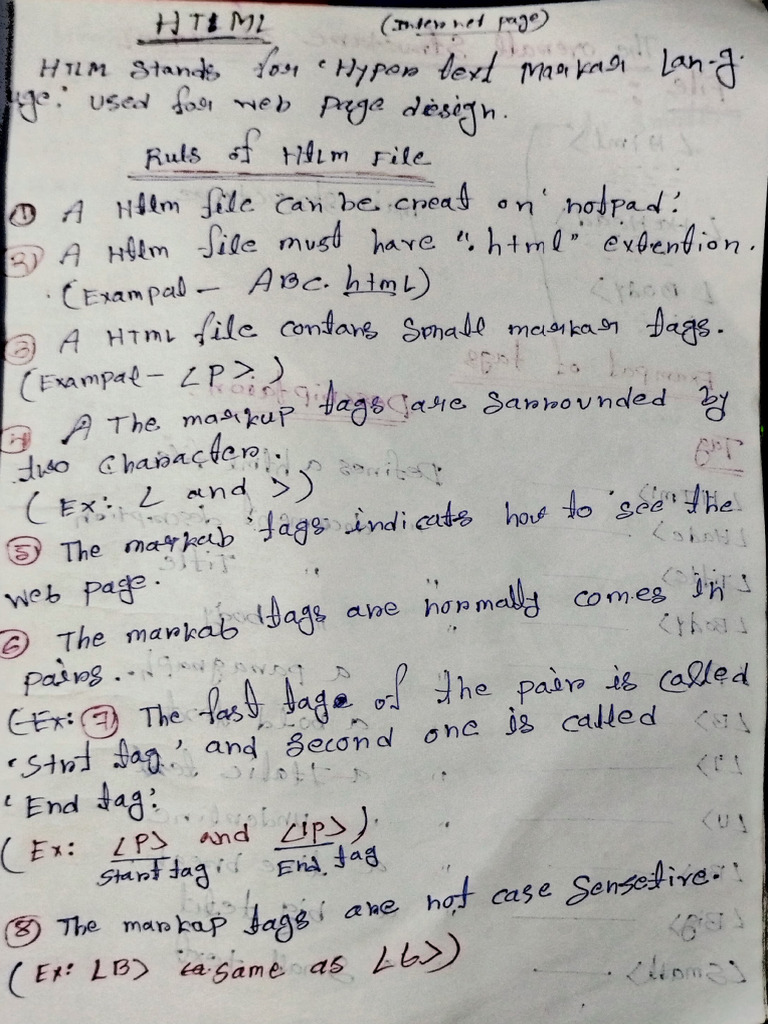 HTLML (Internet page)
HTLM Stands for 'Hyper text Markar Lan-g.
uge.' used for web page design.
Ruls of Htlm File
① A Htlm file can be creat on 'notpad'.
2) A Htlm file must have ".html" extention.
(Exampal - ABC. html)
③ A HTML file contans Small markar tags.
(Exampal - <P>)
④ A The markup tags are Sarrounded by
two character.
(Ex: < and >)
⑤ The markab tags indicats how to 'see' the
web page.
⑥ The markab tags are normally comes in
pairs..
(Ex: ⑦ The fast tage of the pair is called
'Strt tag' and second one is called
'End tag'.
(Ex: <P> and </P>)
Start tag End tag
⑧ The markap tags are not case Sensetive.
(Ex: <B> same as <b>)